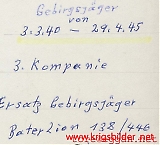 Gebirgsjäger
von
3.3.40 — 29.4.45
3. Kompanie
Ersatz Gebirgsjäger
Baterlion 138/446
www.krigsbilder.net